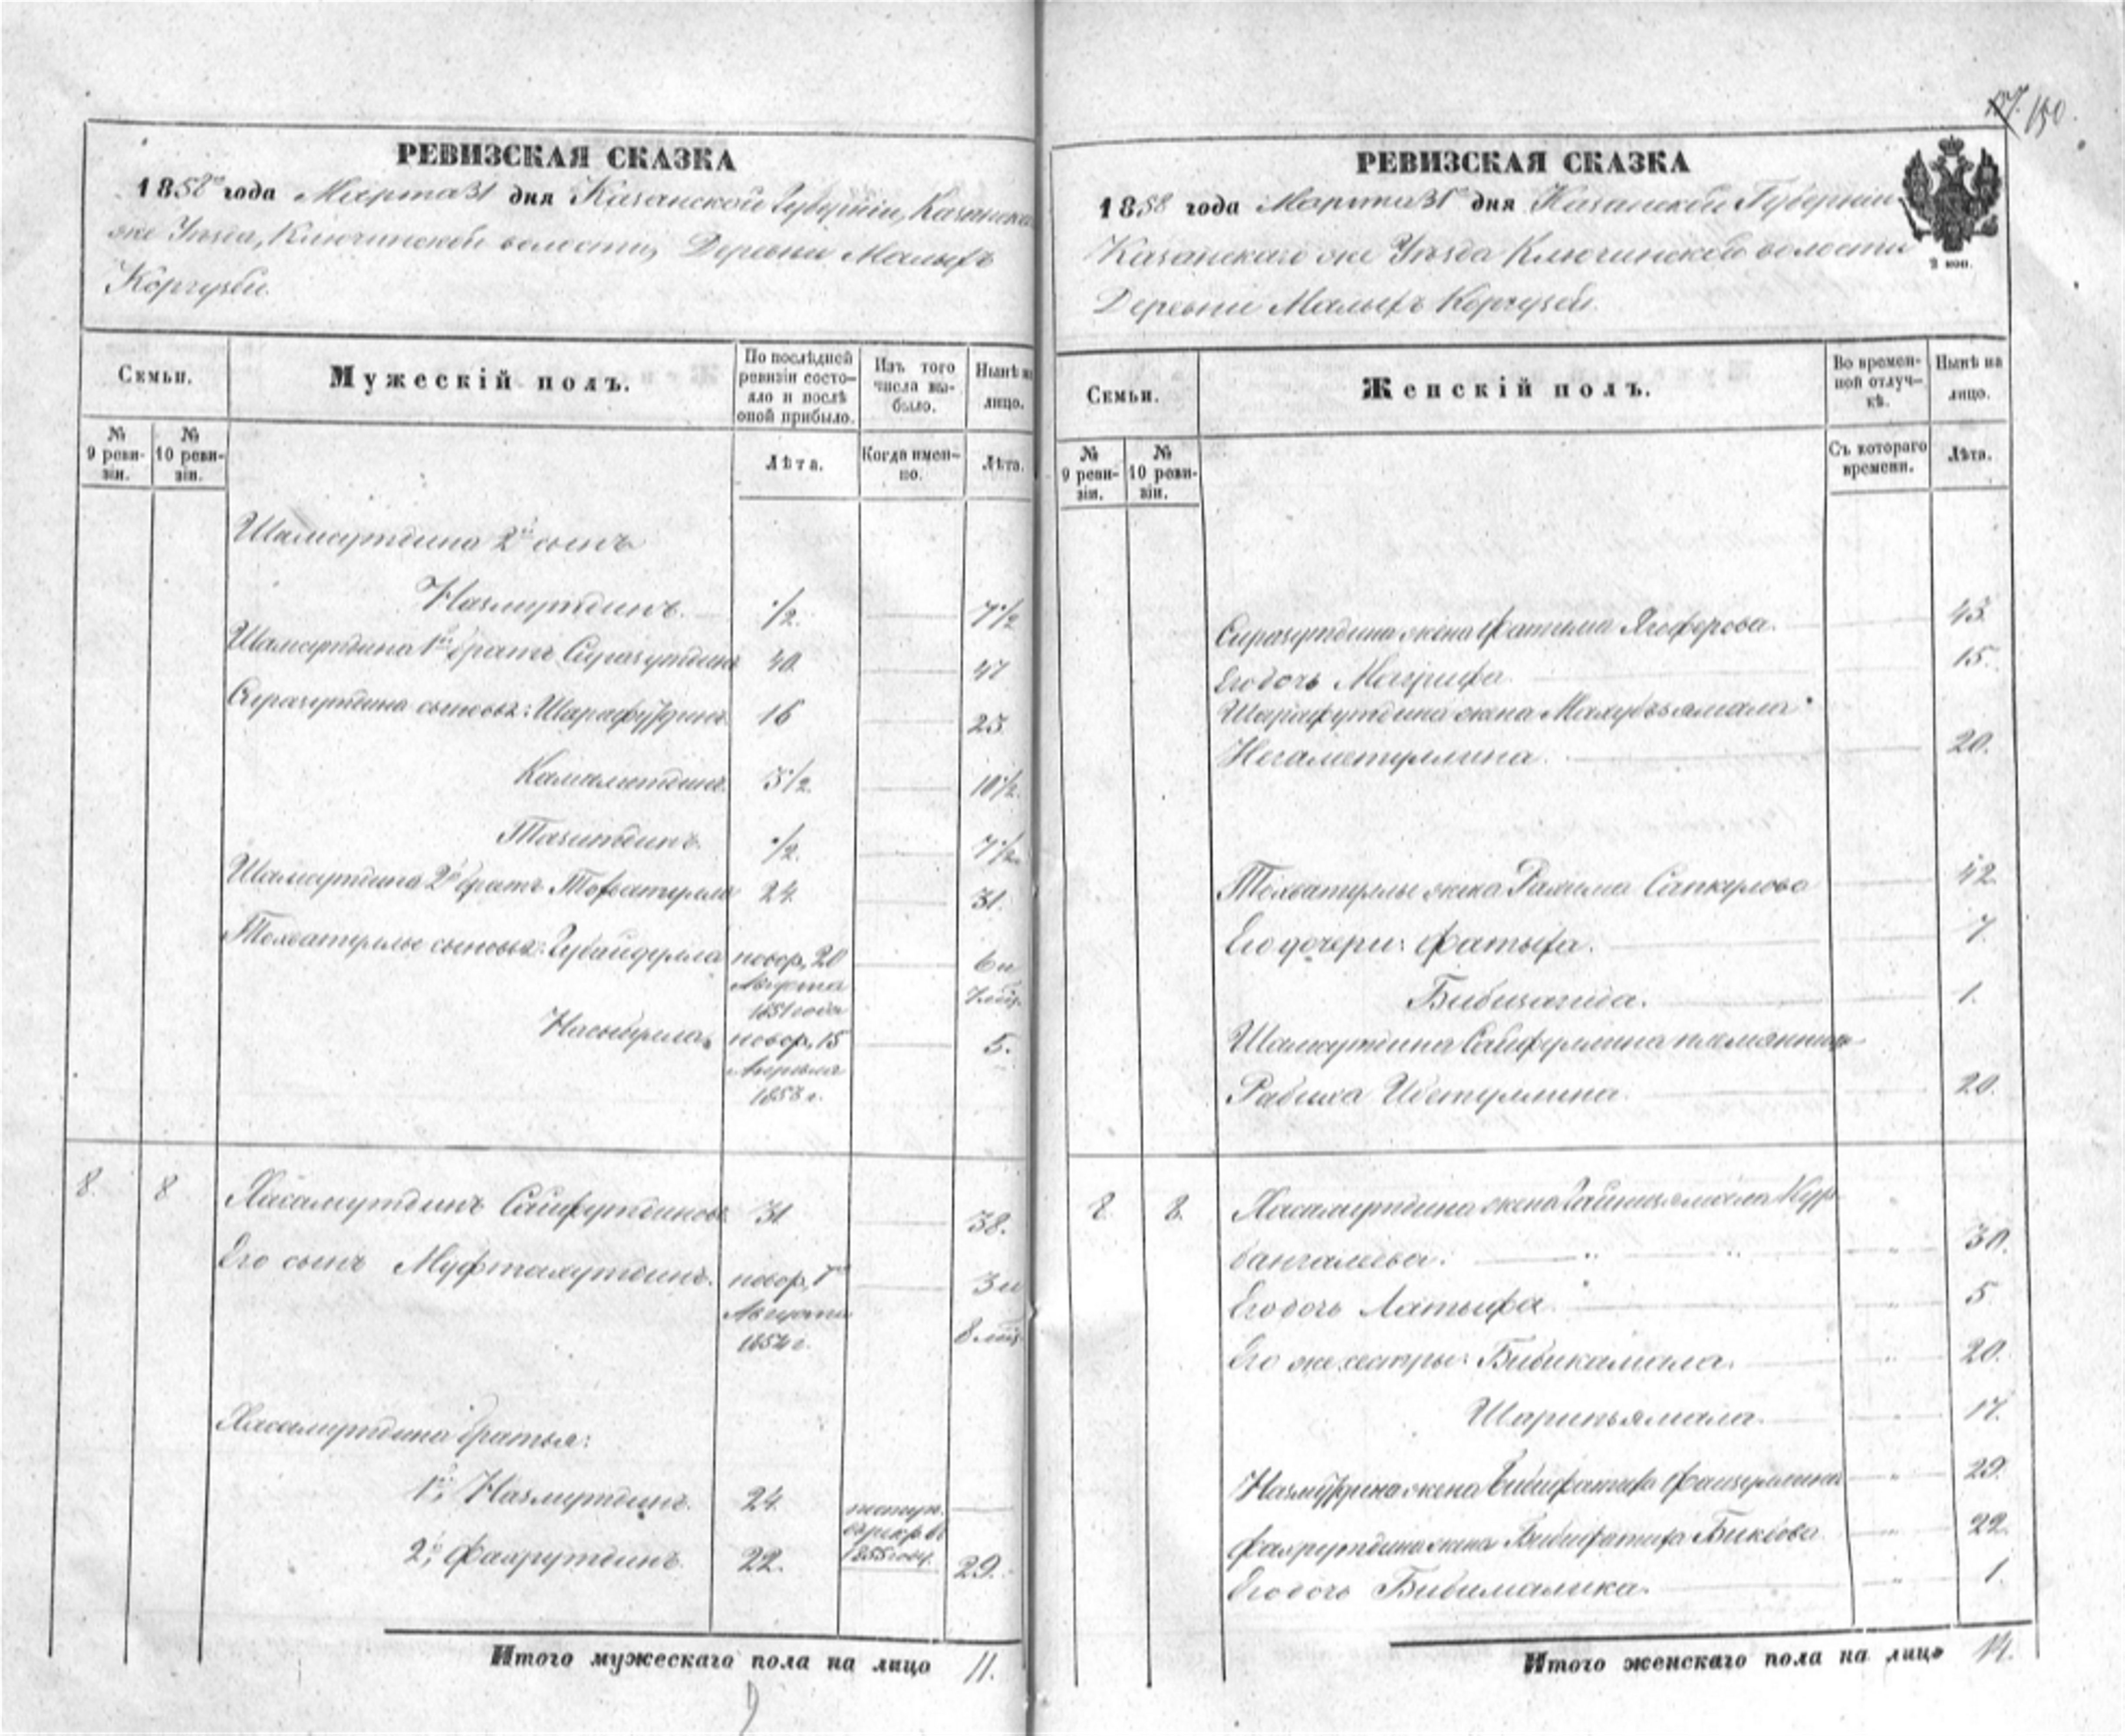 РЕВИЗСКАЯ СКАЗКА
1858го года Марта 31 дня Казанской Губерніи, Казанска
же Уѣзда, Ключинской волости, Деревни Малыхъ
Коргузей.
Семьи.
Мужескій полъ.
По послѣдней ревизіи состояло и послѣ оной прибыло.
Изъ того числа выбыло.
Нынѣ на лицо.
№ 9 ревизіи.
№ 10 ревизіи.
Лѣта.
Когда именно.
Лѣта.
Шамсутдина 2й сынъ
Назмутдинъ. 1/2. 7 1/2
Шамсутдина 1й братъ Сиразутдинъ 40. 47
Сиразутдина сыновья: Шарафутдинъ 16 23.
Камалетдинъ 3 1/2. 10 1/2.
Тазитдинъ. 1/2. 7 1/2.
Шамсутдина 2й братъ Тофатулла 24. 31.
Тохватуллы сыновья: Губайдулла новор. 20 6 и
Августа 7 мѣс.
1851 года
новор. 15 5.
Апрѣля
1853 г.
8. 8 Хасамутдинъ Сайфутдиновъ 31 38.
Его сынъ Муфтахутдинъ. новор. 7го 3 и
Августа 8 мѣс.
1854 г.
Хасамутдина братья:
1й, Назмутдинъ. 24. поступ.
въ рекр. въ
2й, Фахрутдинъ. 22. 1855 году. 29.
Итого мужескаго пола на лицо 11.
150.
РЕВИЗСКАЯ СКАЗКА
1858 года Марта 31го дня Казанской Губерніи
Казанскаго же Уѣзда Ключинской волости
2 коп.
Деревни Малыхъ Коргузей.
Семьи.
Женскій полъ.
Во временной отлучкѣ.
Нынѣ на лицо.
№ 9 ревизіи.
№ 10 ревизіи.
Съ котораго времени.
Лѣта.
Сиразутдина жена Фатима Ягоферова. 43.
Его дочь Магрифа 15.
Шарафутдина жена Махубзямала
Негаметуллина. 20.
Тохватуллы жена Рахима Сапкулова 42
Его дочери: Фатыха. 7.
Бибизагида. 1.
Шамсутдина Сайфуллина племянница
Рабига Ибетуллина. 20.
8. 8. Хасамутдина жена Гайнизямала Кур-
бангалеева. 30.
Его дочь Латыфа 5
Его же сестры: Бибикамала. 20.
Шарипзямала. 17.
Назмутдина жена Бибифатиха Фаизуллина 29.
Фахрутдина жена Бибифатиха Бикеева 22.
Его дочь Бибималика. 1.
Итого женскаго пола на лицо 14.